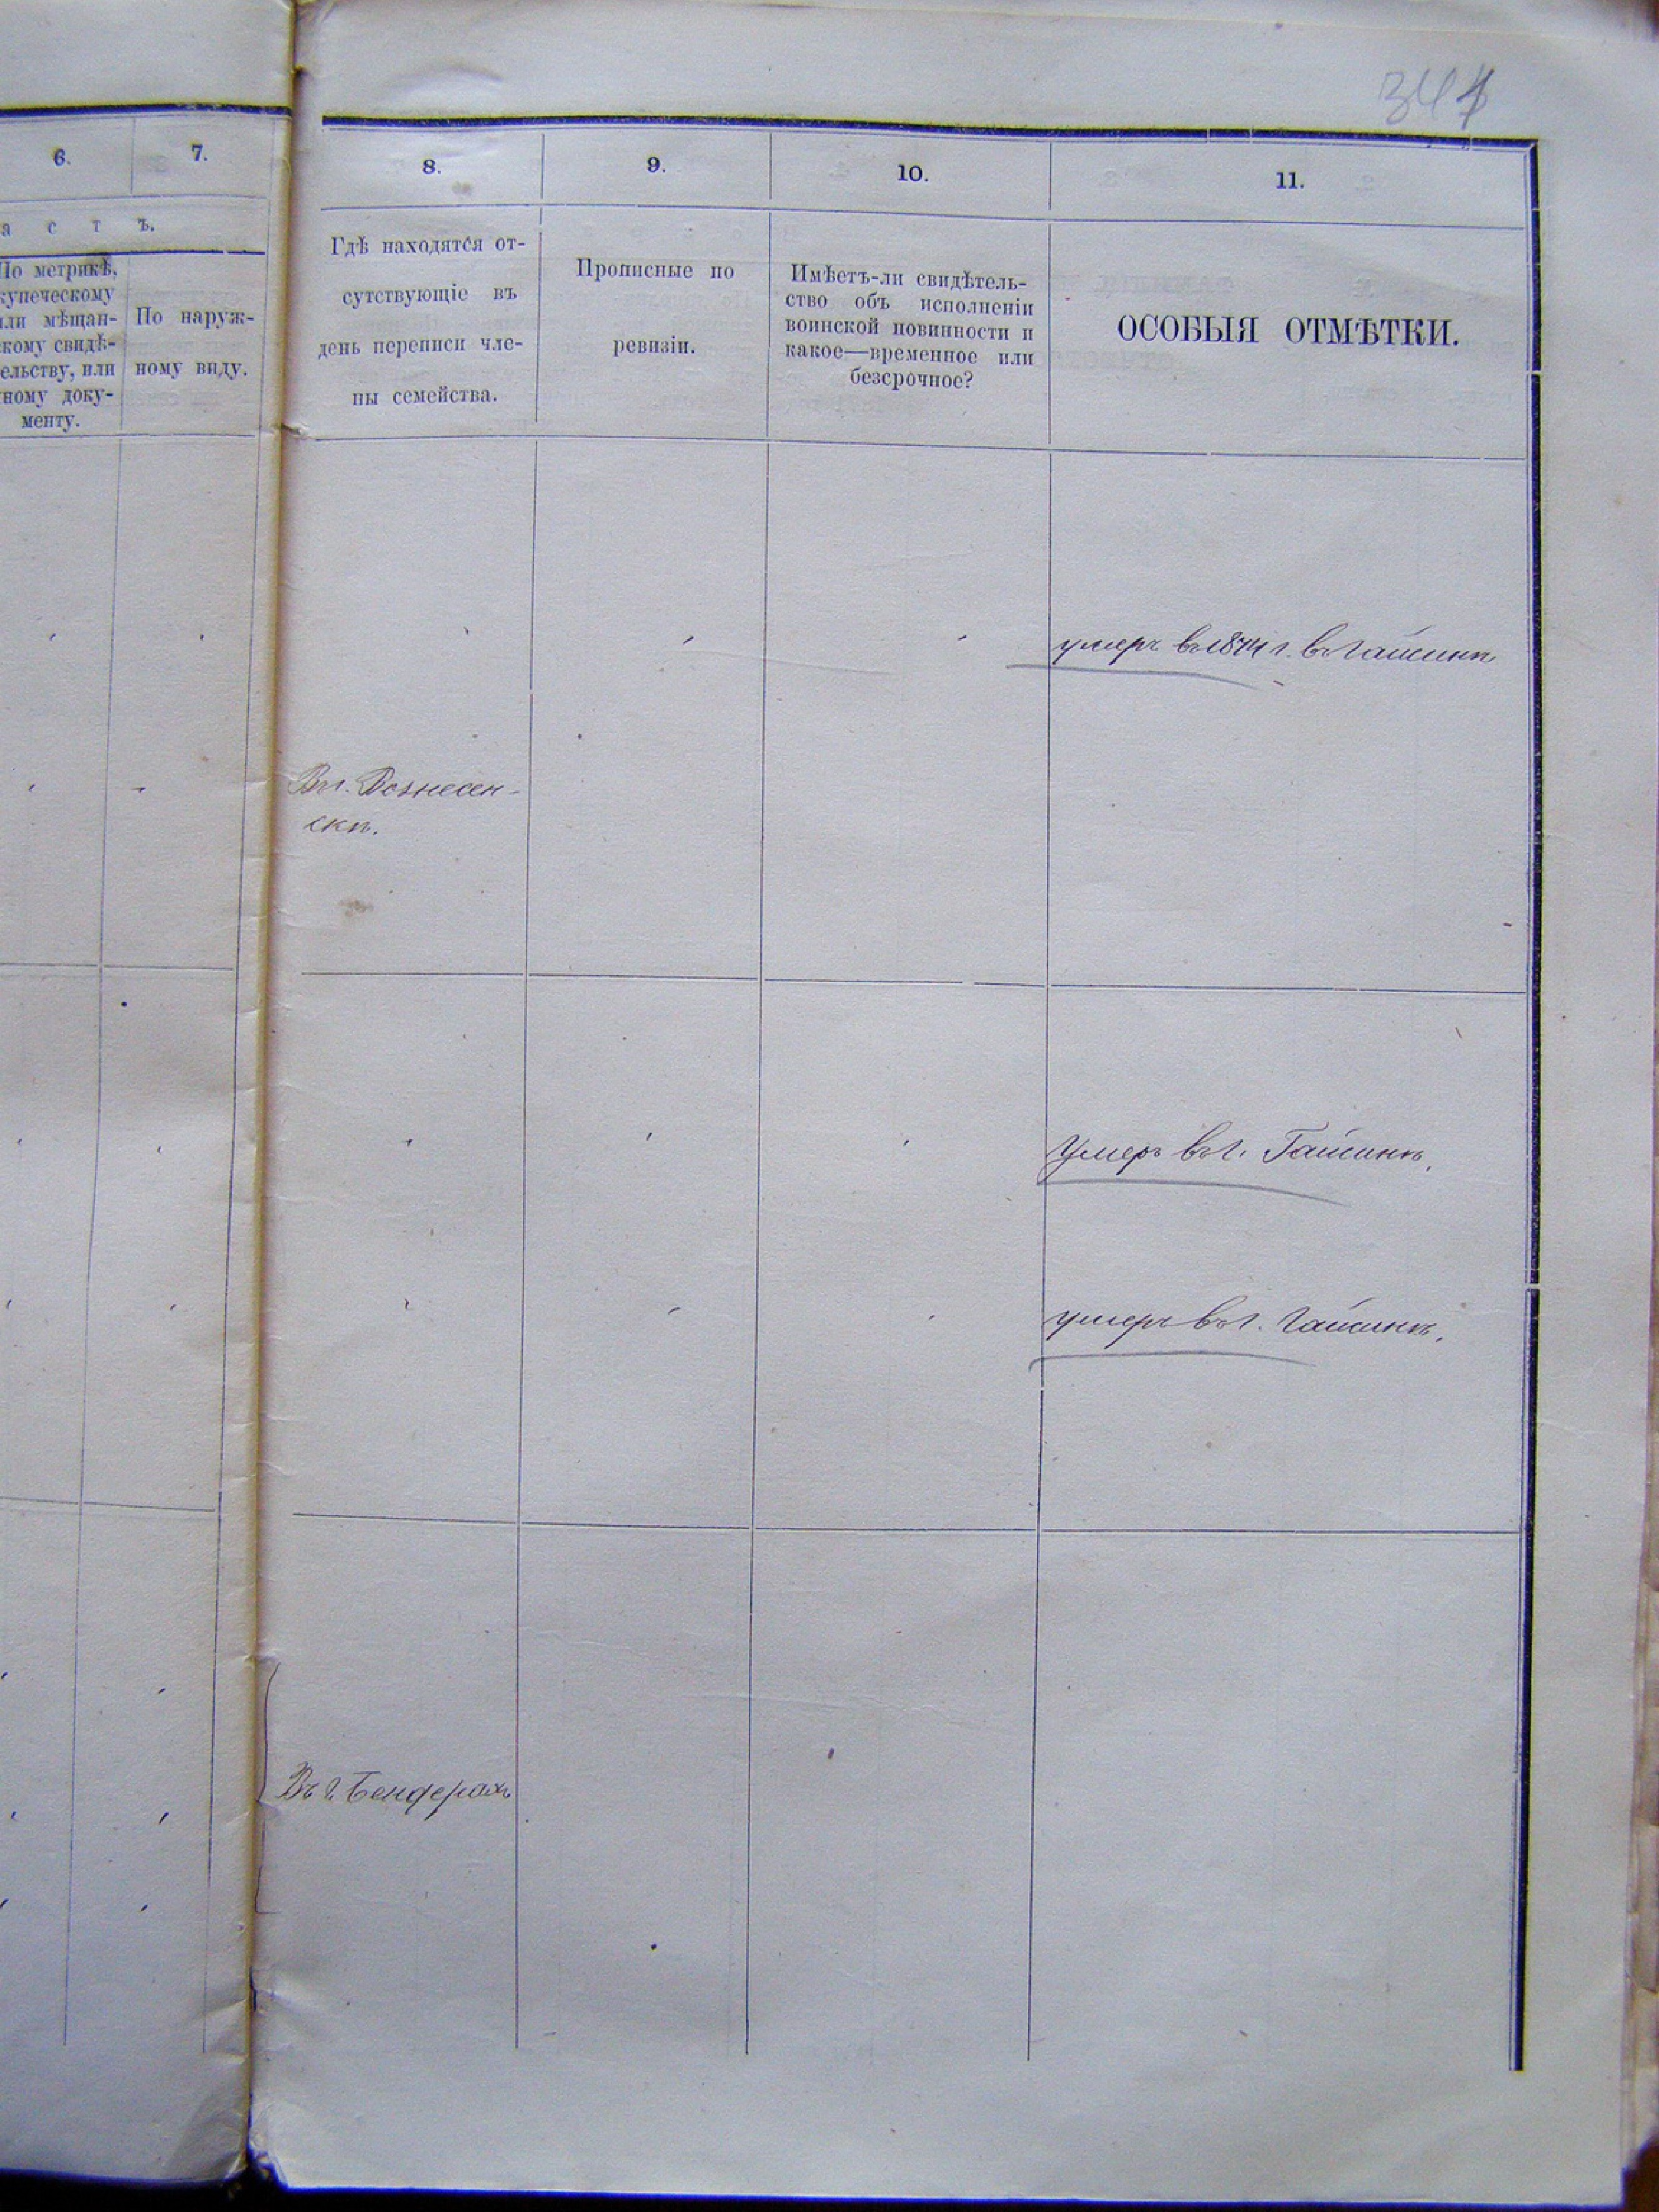 6.
7.
8.
9.
10.
11.
а с т ъ.
По метрикѣ,
купеческому
или мѣщан-
скому свидѣ-
ельству, или
ному доку-
менту.
По наруж-
ному виду.
Гдѣ находятся от-
сутствующіе въ
день переписи чле-
ны семейства.
Прописные по
ревизіи.
Имѣетъ-ли свидѣтель-
ство объ исполненіи
воинской повинности и
какое—временное или
безсрочное?
ОСОБЫЯ ОТМѢТКИ.
умеръ въ г. въ Гайсинѣ
Въ г. Вознесен-
скѣ.
Умеръ въ г. Гайсинѣ.
умеръ въ г. Гайсинѣ.
Въ г. Бендерахъ